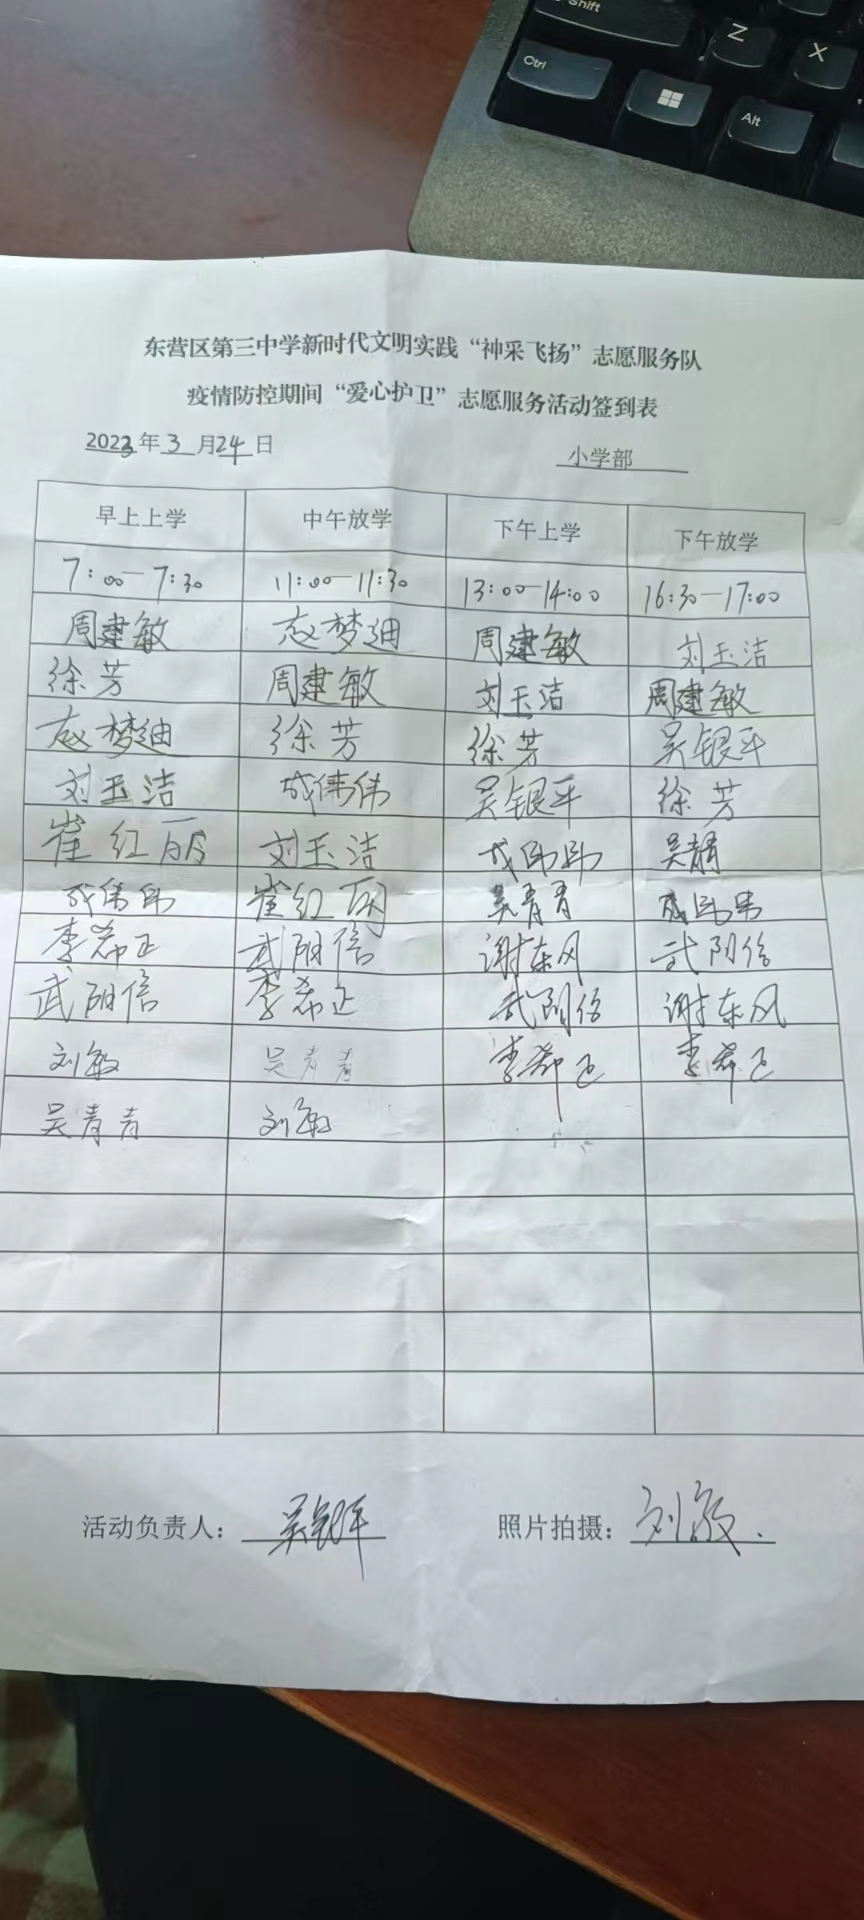 Shift
Z
X
Ctrl
Alt
东营区第三中学新时代文明实践“神采飞扬”志愿服务队
疫情防控期间“爱心护卫”志愿服务活动签到表
2023年3月24日 小学部
早上上学 中午放学 下午上学 下午放学
7:00-7:30 11:00-11:30 13:00-14:00 16:30-17:00
周建敏 赵梦迪 周建敏 刘玉洁
徐芳 周建敏 刘玉洁 周建敏
赵梦迪 徐芳 徐芳 吴银平
刘玉洁 成伟伟 吴银平 徐芳
崔红丽 刘玉洁 成伟伟 吴青青
成伟伟 崔红丽 吴青青 成伟伟
李希正 武阴信 谢东风 武阴信
武阴信 李希正 武阴信 谢东风
刘敏 吴青青 李希正 李希正
吴青青 刘敏
活动负责人：吴银平 照片拍摄：刘敏.